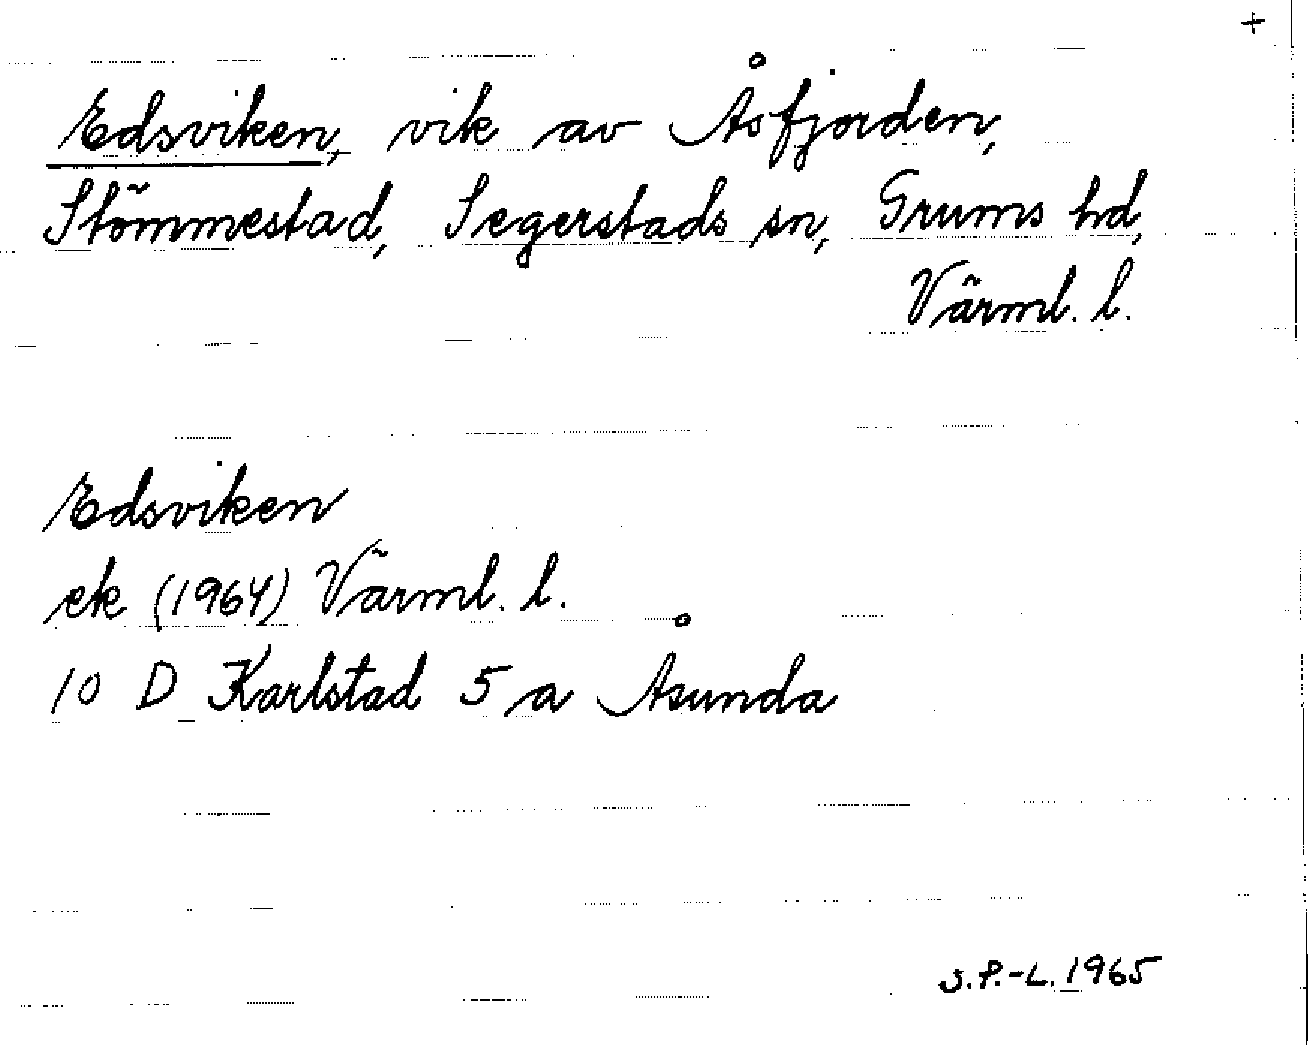 +
Edsviken, vik av Åsfjorden,
Stömmestad, Segerstads sn, Grums hd,
Värml. l.
Edsviken
ek (1964) Värml. l.
10 D Karlstad 5 a Åsunda
S.P.-L. 1965